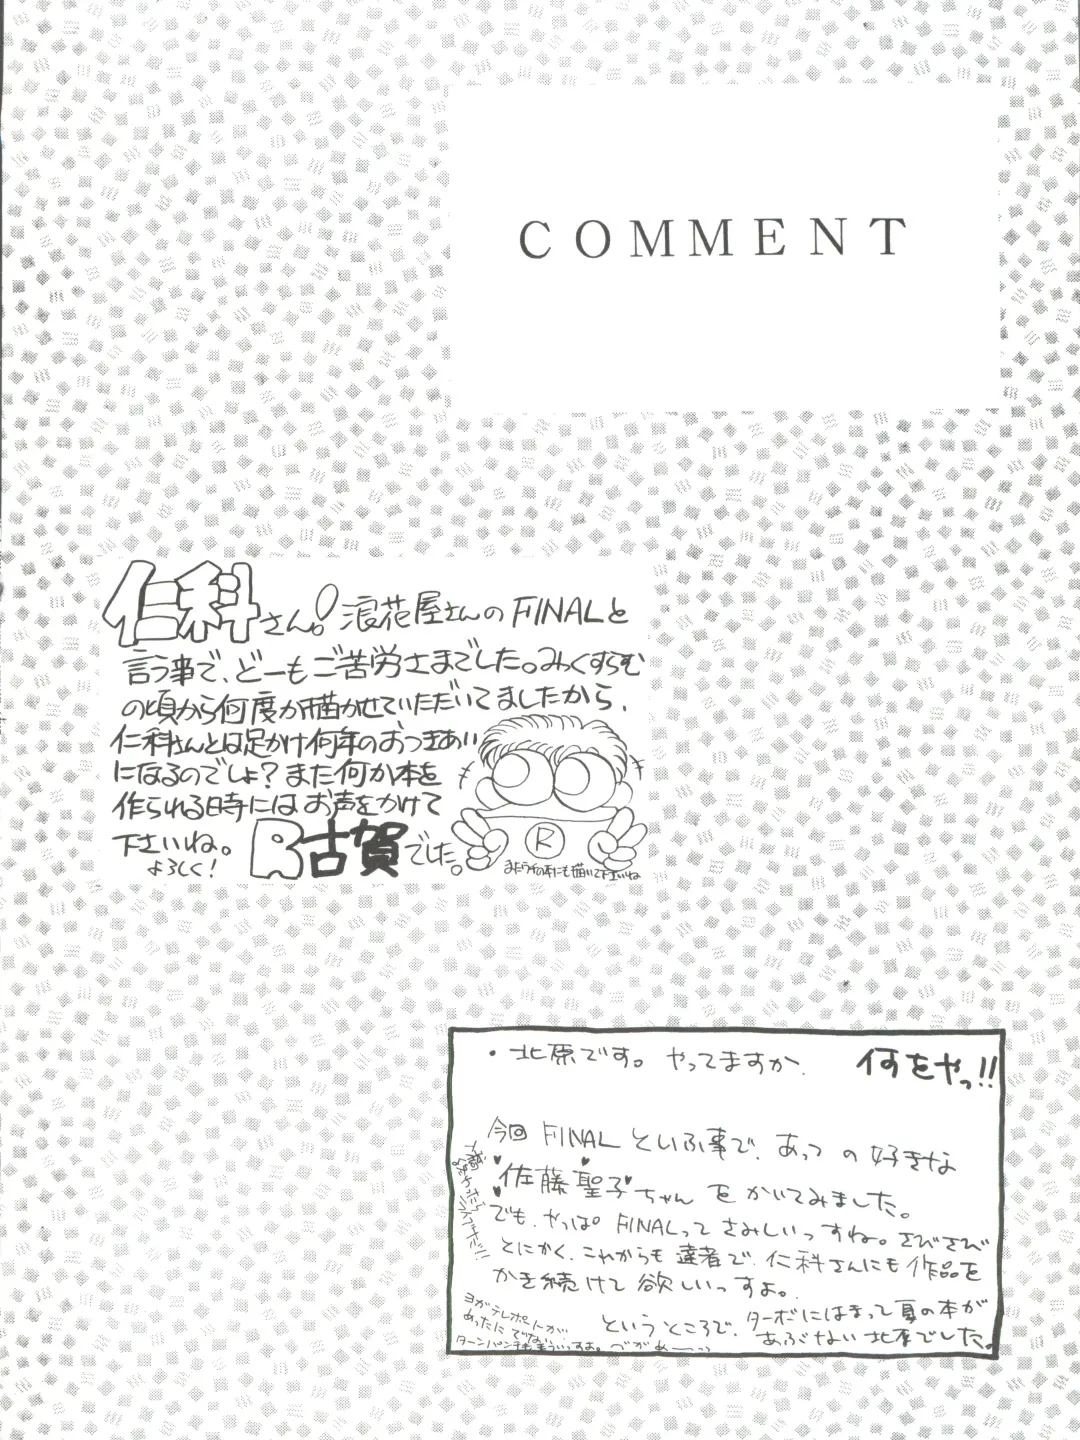 COMMENT
仁科さん! 浪花屋さんの FINALと
言う事で、どーもご苦労さまでした。みっくすらむ
の頃から何度か描かせていただいてましたから、
仁科さんとは足かけ何年のおつきあい
になるのでしょ?また何か本を
作られる時にはお声をかけて
下さいね。
よろしく!
R古賀でした。
R
・北原です。やってますか。
何をやっ!!
今回 FINALといふ事で、あっての好きな
佐藤聖子ちゃん をかいてみました。
でも、やっぱ FINALってさみしいっすね。さびさび
とにかく、これからも達者で、仁科さんにも作品を
かき続けて欲しいっすよ。
というところで、ターボにはまって夏の本が
あぶない北原でした。
ヨガテレポートが
めったにでない